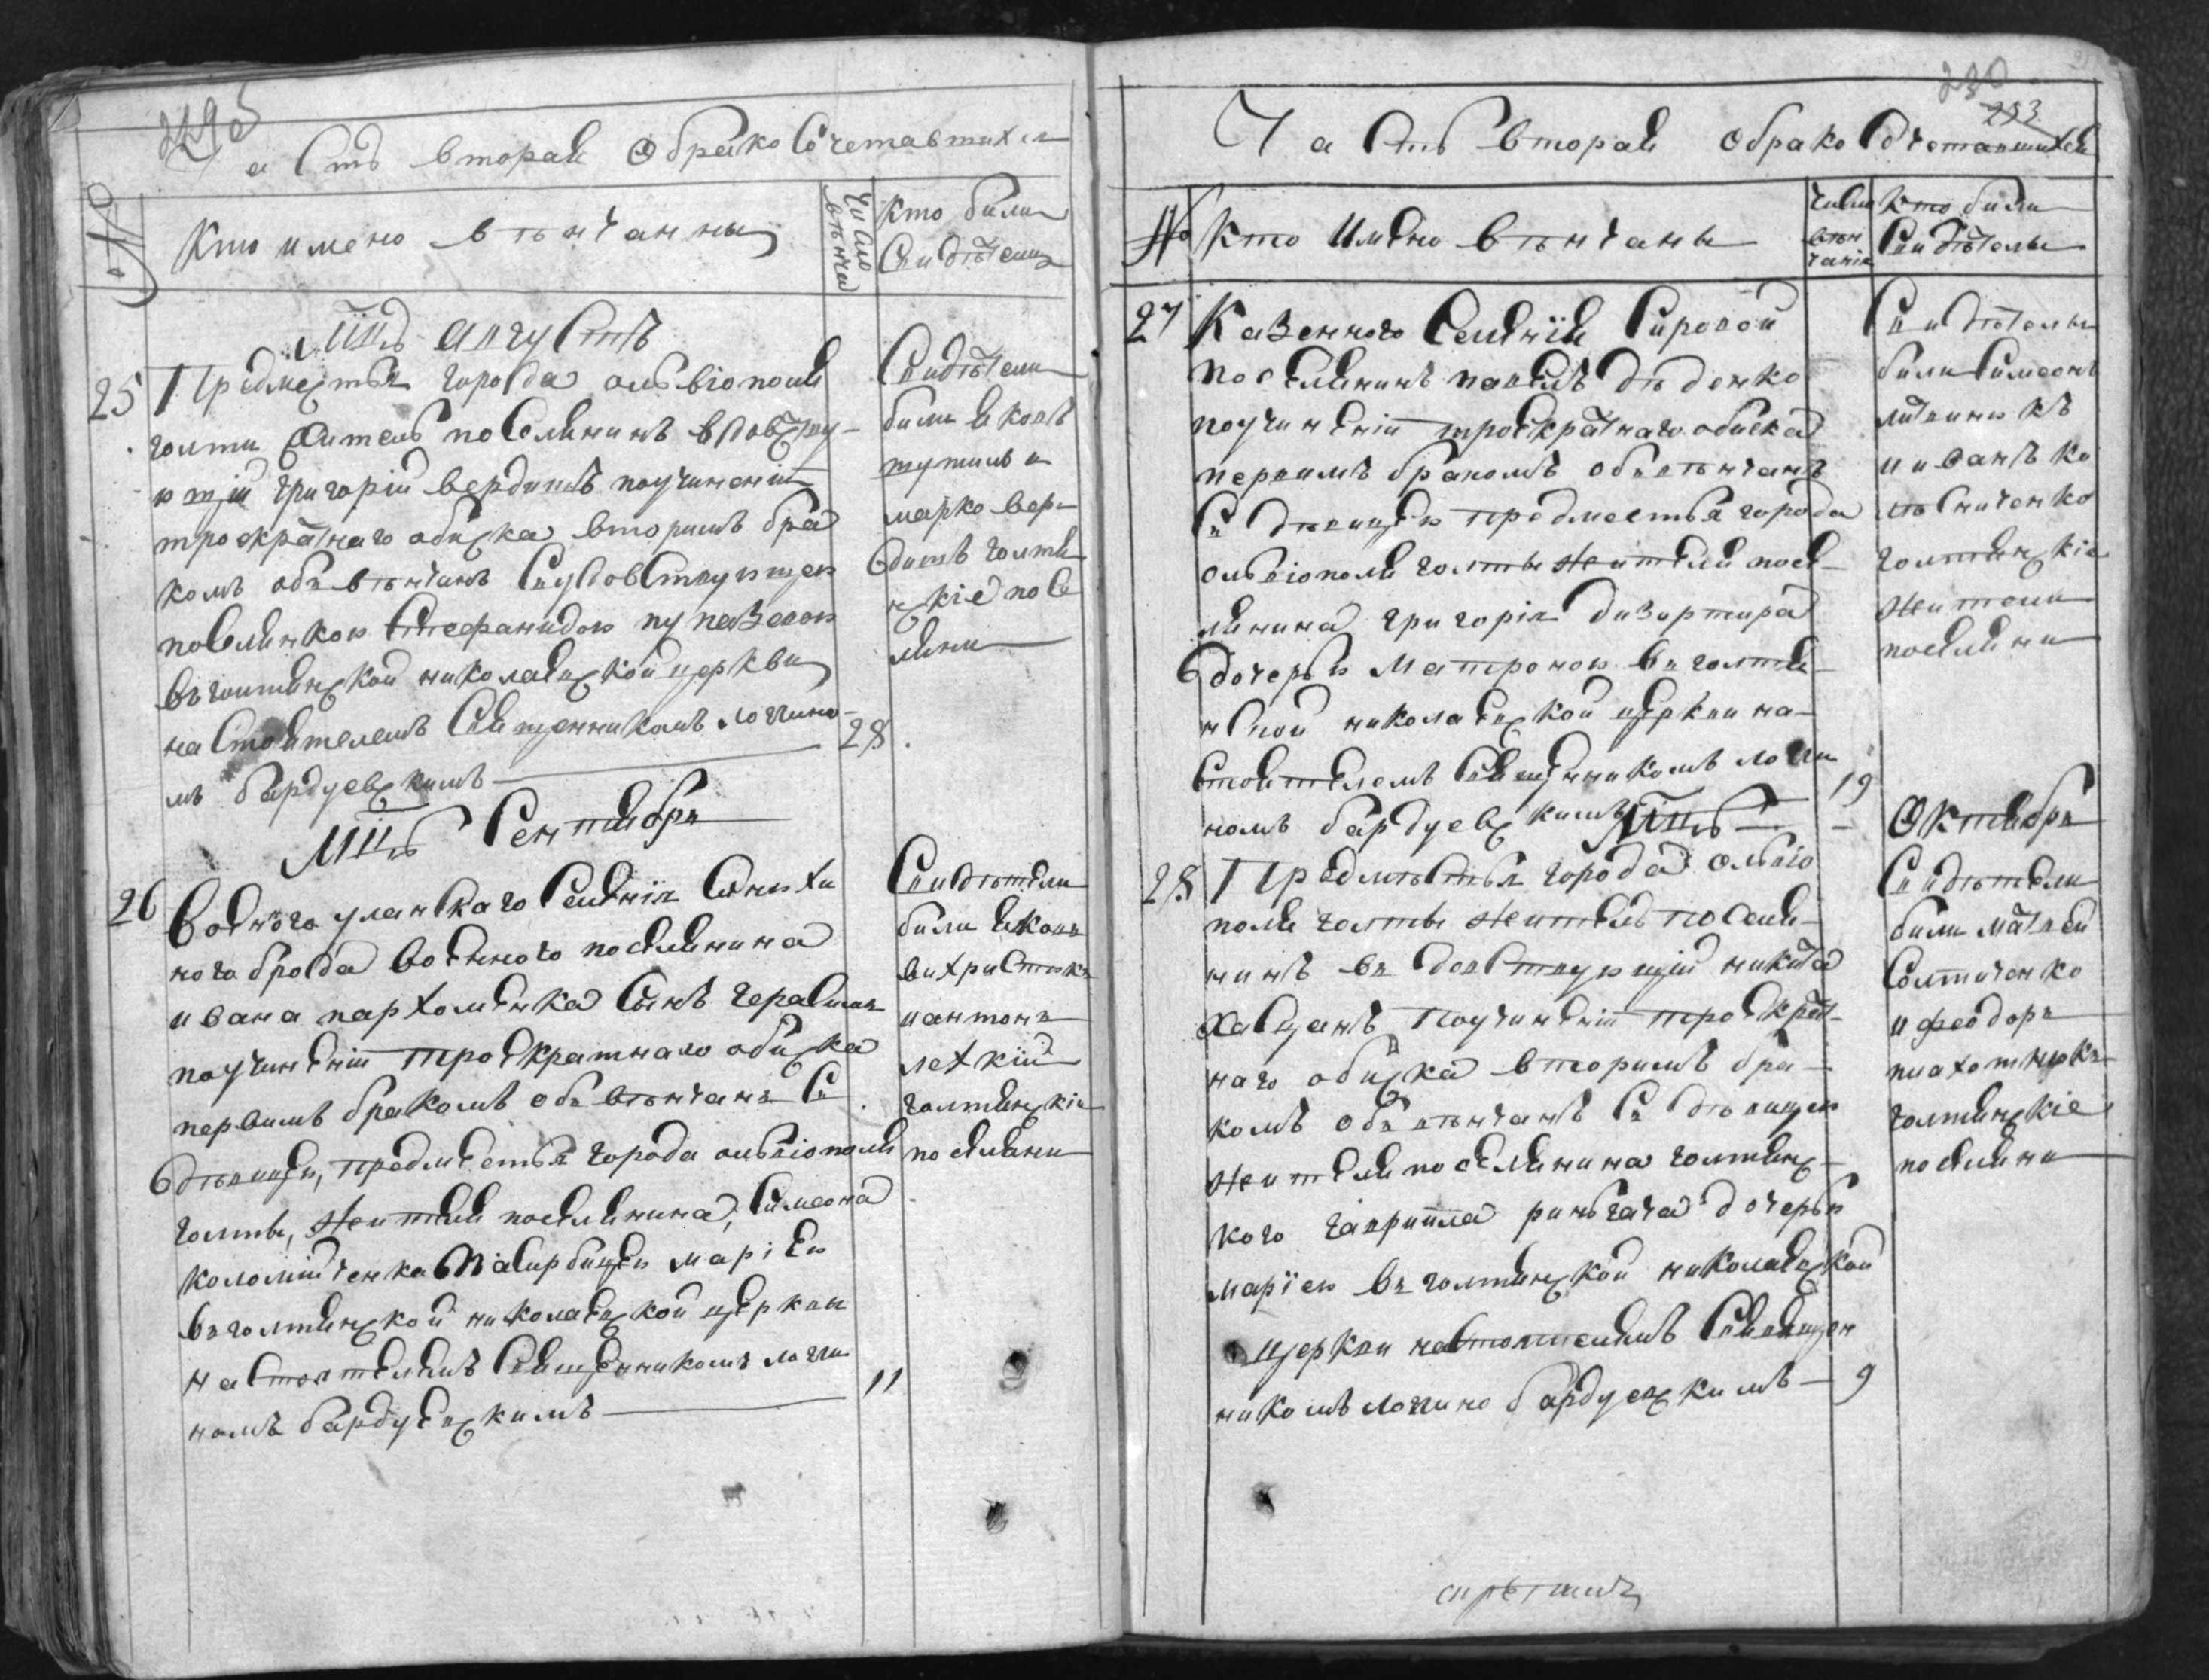 Часть вторая о бракосочетавшихся
№
Кто имено вѣнчанны
число вѣнча
Кто были
Свидѣтели
Мцъ августъ
25 Предмѣстья города олвіополя
голти житель поселянинъ вдовству-
ющій григорій вердишъ поучиненіи
троекратнаго обиска вторимъ бра
комъ обвѣнчанъ совдовствующею
поселянкою Стефанидою
въ голтянской николаевской церкви
настоятелемъ Священникомъ логгино-
мъ бардуевскимъ 28
Свидѣтели
были яковъ
и
марко вер-
дишъ голтя
нскіе посе
ляни
Мцъ Сентября
26 военого уланскаго Селенія Синюхи
ного брода военного поселянина
ивана пархоменка Сынъ герасимъ
поучиненіи троекратнаго обиска
первимъ бракомъ обвѣнчанъ съ
дѣвицею, предмѣстья города олвіополя
голты, жителя поселянина, Симеона
коломійченка маріею
въ голтянской николаевской церквы
настоятелемъ Священникомъ логги
номъ бардуевскимъ 11
Свидѣтели
были яковъ
и антонъ
легкій
голтянскіе
поселяни
230
253
Часть вторая о бракосочетавшихся
№ Кто имено вѣнчаны
число вѣнчанія
Кто были
Свидѣтели
27 Казенного Селенія Сировой
поселянинъ павелъ дѣденко
поучиненіи троекратнаго обиска
первимъ бракомъ обвѣнчанъ
съ дѣвицею предмѣстья города
олвіополя голты жителя посе-
лянина григорія дизортира
дочерью Матроною въ голтя-
нской николаевской церкви на-
стоятелемъ Священникомъ логги
номъ бардуевскимъ 19
Свидѣтели
были Симеонъ
литвинюкъ
и иванъ ко
лѣсниченко
голтянскіе
жители
поселяни
Мцъ Октября
28 Предмѣстья города олвіо
поля голты житель поселя-
нинъ вдовствующій никита
хащанъ поучиненіи троекрат-
наго обиска вторимъ бра-
комъ обвѣнчанъ съ дѣвицею
жителя поселянина голтянс-
кого гавриила дочерью
маріею въ голтянской николаевской
церкви настоятелемъ Священ
никомъ логгино бардуевскимъ 9
Свидѣтели
были матвей
Солтиченко
и феодоръ
голтянскіе
поселяни